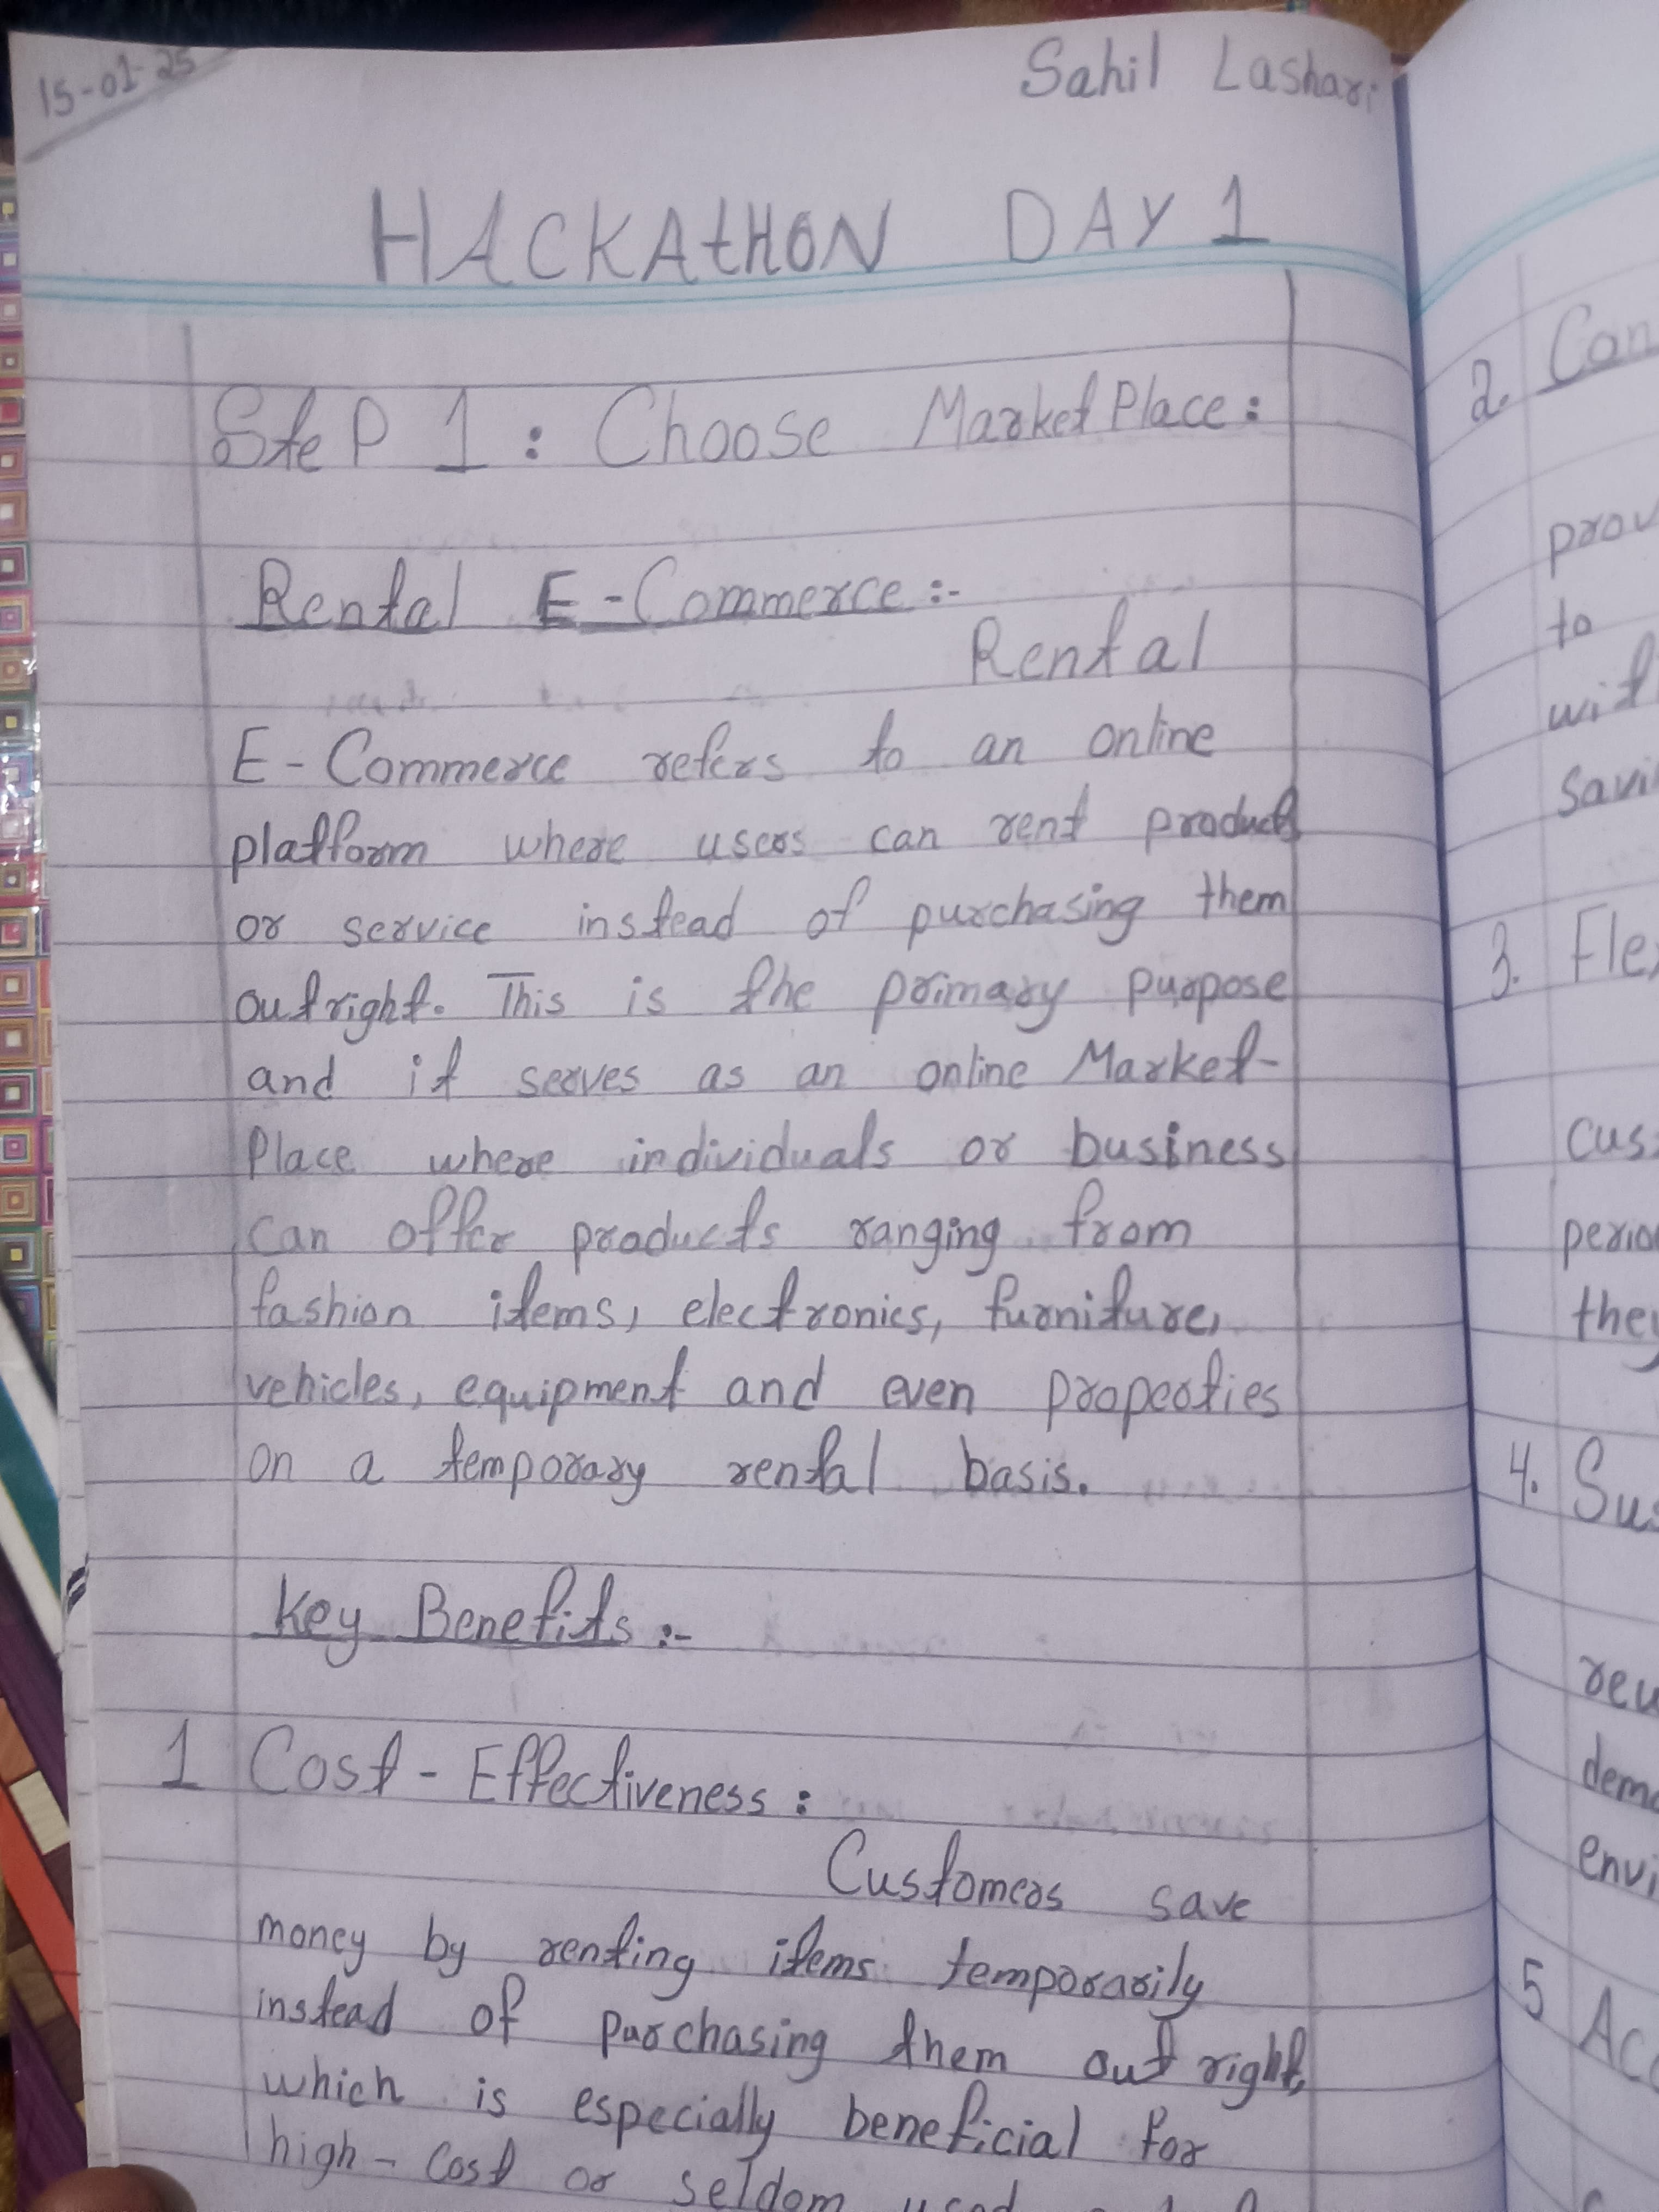 15-01-25
Sahil Lashari
HACKAtHON DAY 1
SteP 1 : Choose MarketPlace :
Rental E-Commerce :-
Rental
E-Commerce refers to an online
platform where users can rent products
or service instead of purchasing them
outright. This is the primary purpose
and it serves as an online Market-
Place where individuals or business
can offer products ranging from
fashion items, electronics, furniture,
vehicles, equipment and even properties
on a temporary rental basis.
Key Benefits :-
1 Cost-Effectiveness :
Customers save
money by renting items temporarily
instead of purchasing them out right,
which is especially beneficial for
high-cost or seldom used
2. Con
prov
to
wit
savi
3. Fle
cus
perio
they
4. Sus
reu
dem
envi
5 Acc